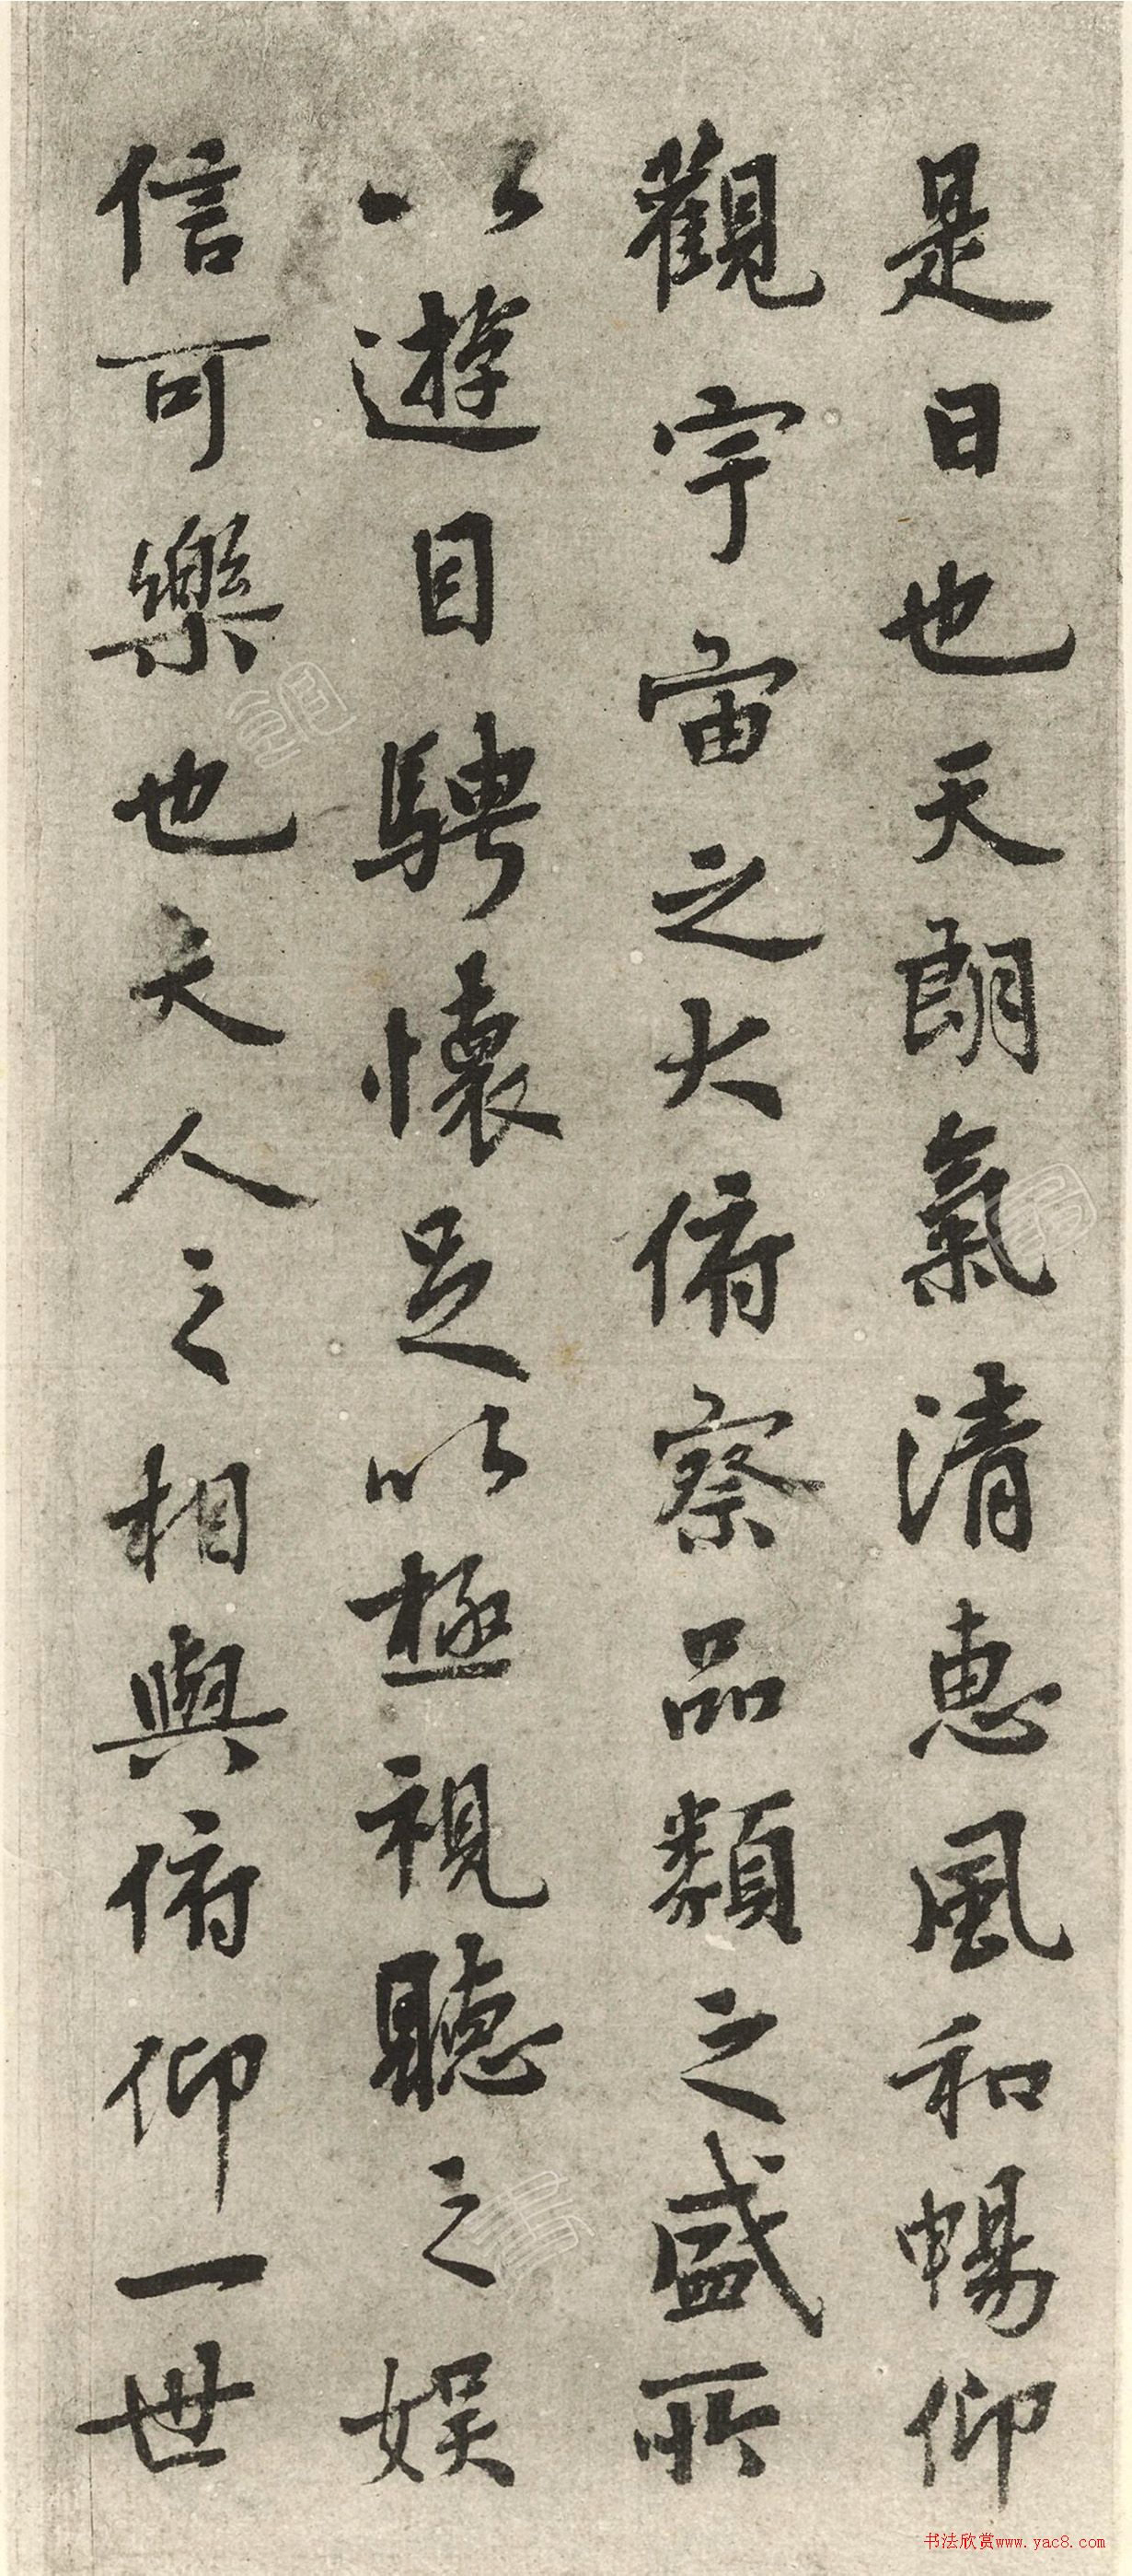 是日也天朗氣清惠風和暢仰
觀宇宙之大俯察品類之盛所
以遊目騁懷足以極視聽之娛
信可樂也夫人之相與俯仰一世
书法欣赏www.yac8.com